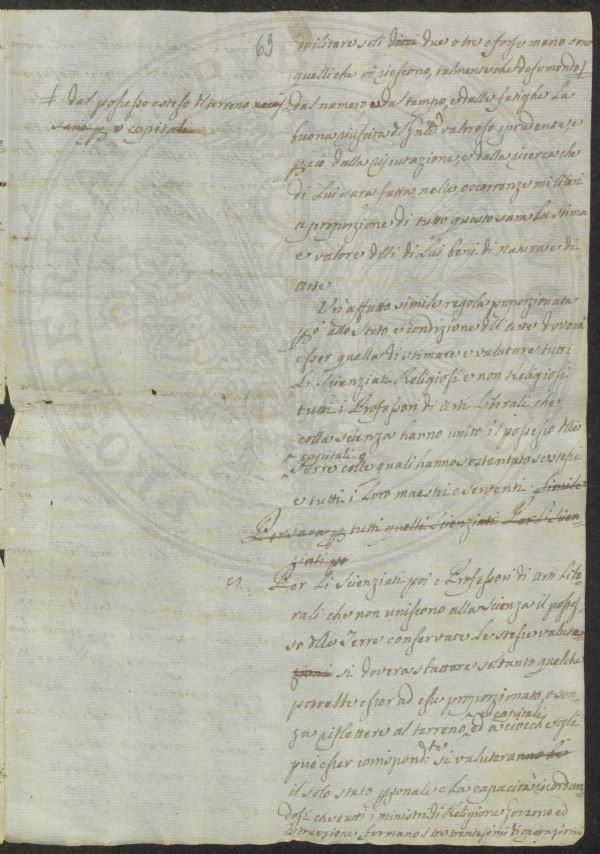 63
militare soli dieci due o tre e forse meno sono
quelli che vi riescono, talmente che desumendo
† dal possesso esteso di terreno
e capitali
dal numero e dal tempo, e dalle fatighe la
buona riuscita d valoroso e prudente, e
p ciò dalla riputazione, e dalla ricerca che
di Lui sarà fatta nelle occorrenze militari
a proporzione di tutto questo sarà la stima
e valore delli di Lui beni di natura e di
arte
Un affatto simile regola proporzionata
pº allo stato e condizione dell' arte dovrà
esser quella di stimare e valutare tutti
li Scienziati Religiosi e non Religiosi
tutti i Professori di arti Liberali che
colla scienza hanno unito il possesso delle
capitali
Terre colle quali hanno sostentato se stessi
e tutti i Loro maestri e serventi. Simile
sarà p tutti quelli Scienziati Per li Scien-
ziati
5. Per Li Scienziati poi e Professori di arti Libe-
rali che non uniscono alla Scienza il posses-
so delle Terre conservate Le stesse valuta-
zioni si doverà sbattere soltanto quel che
potrebbe esser ad essi proporzionato, o sen-
za riflettere al terreno, ed a ciò che egli
e capitali
può esser corrispondte si valuteranno
il solo stato psonale e la capacità ricordan-
dosi che tutti i ministri di Religione Governo ed
istruzione formano i tre trentesimi